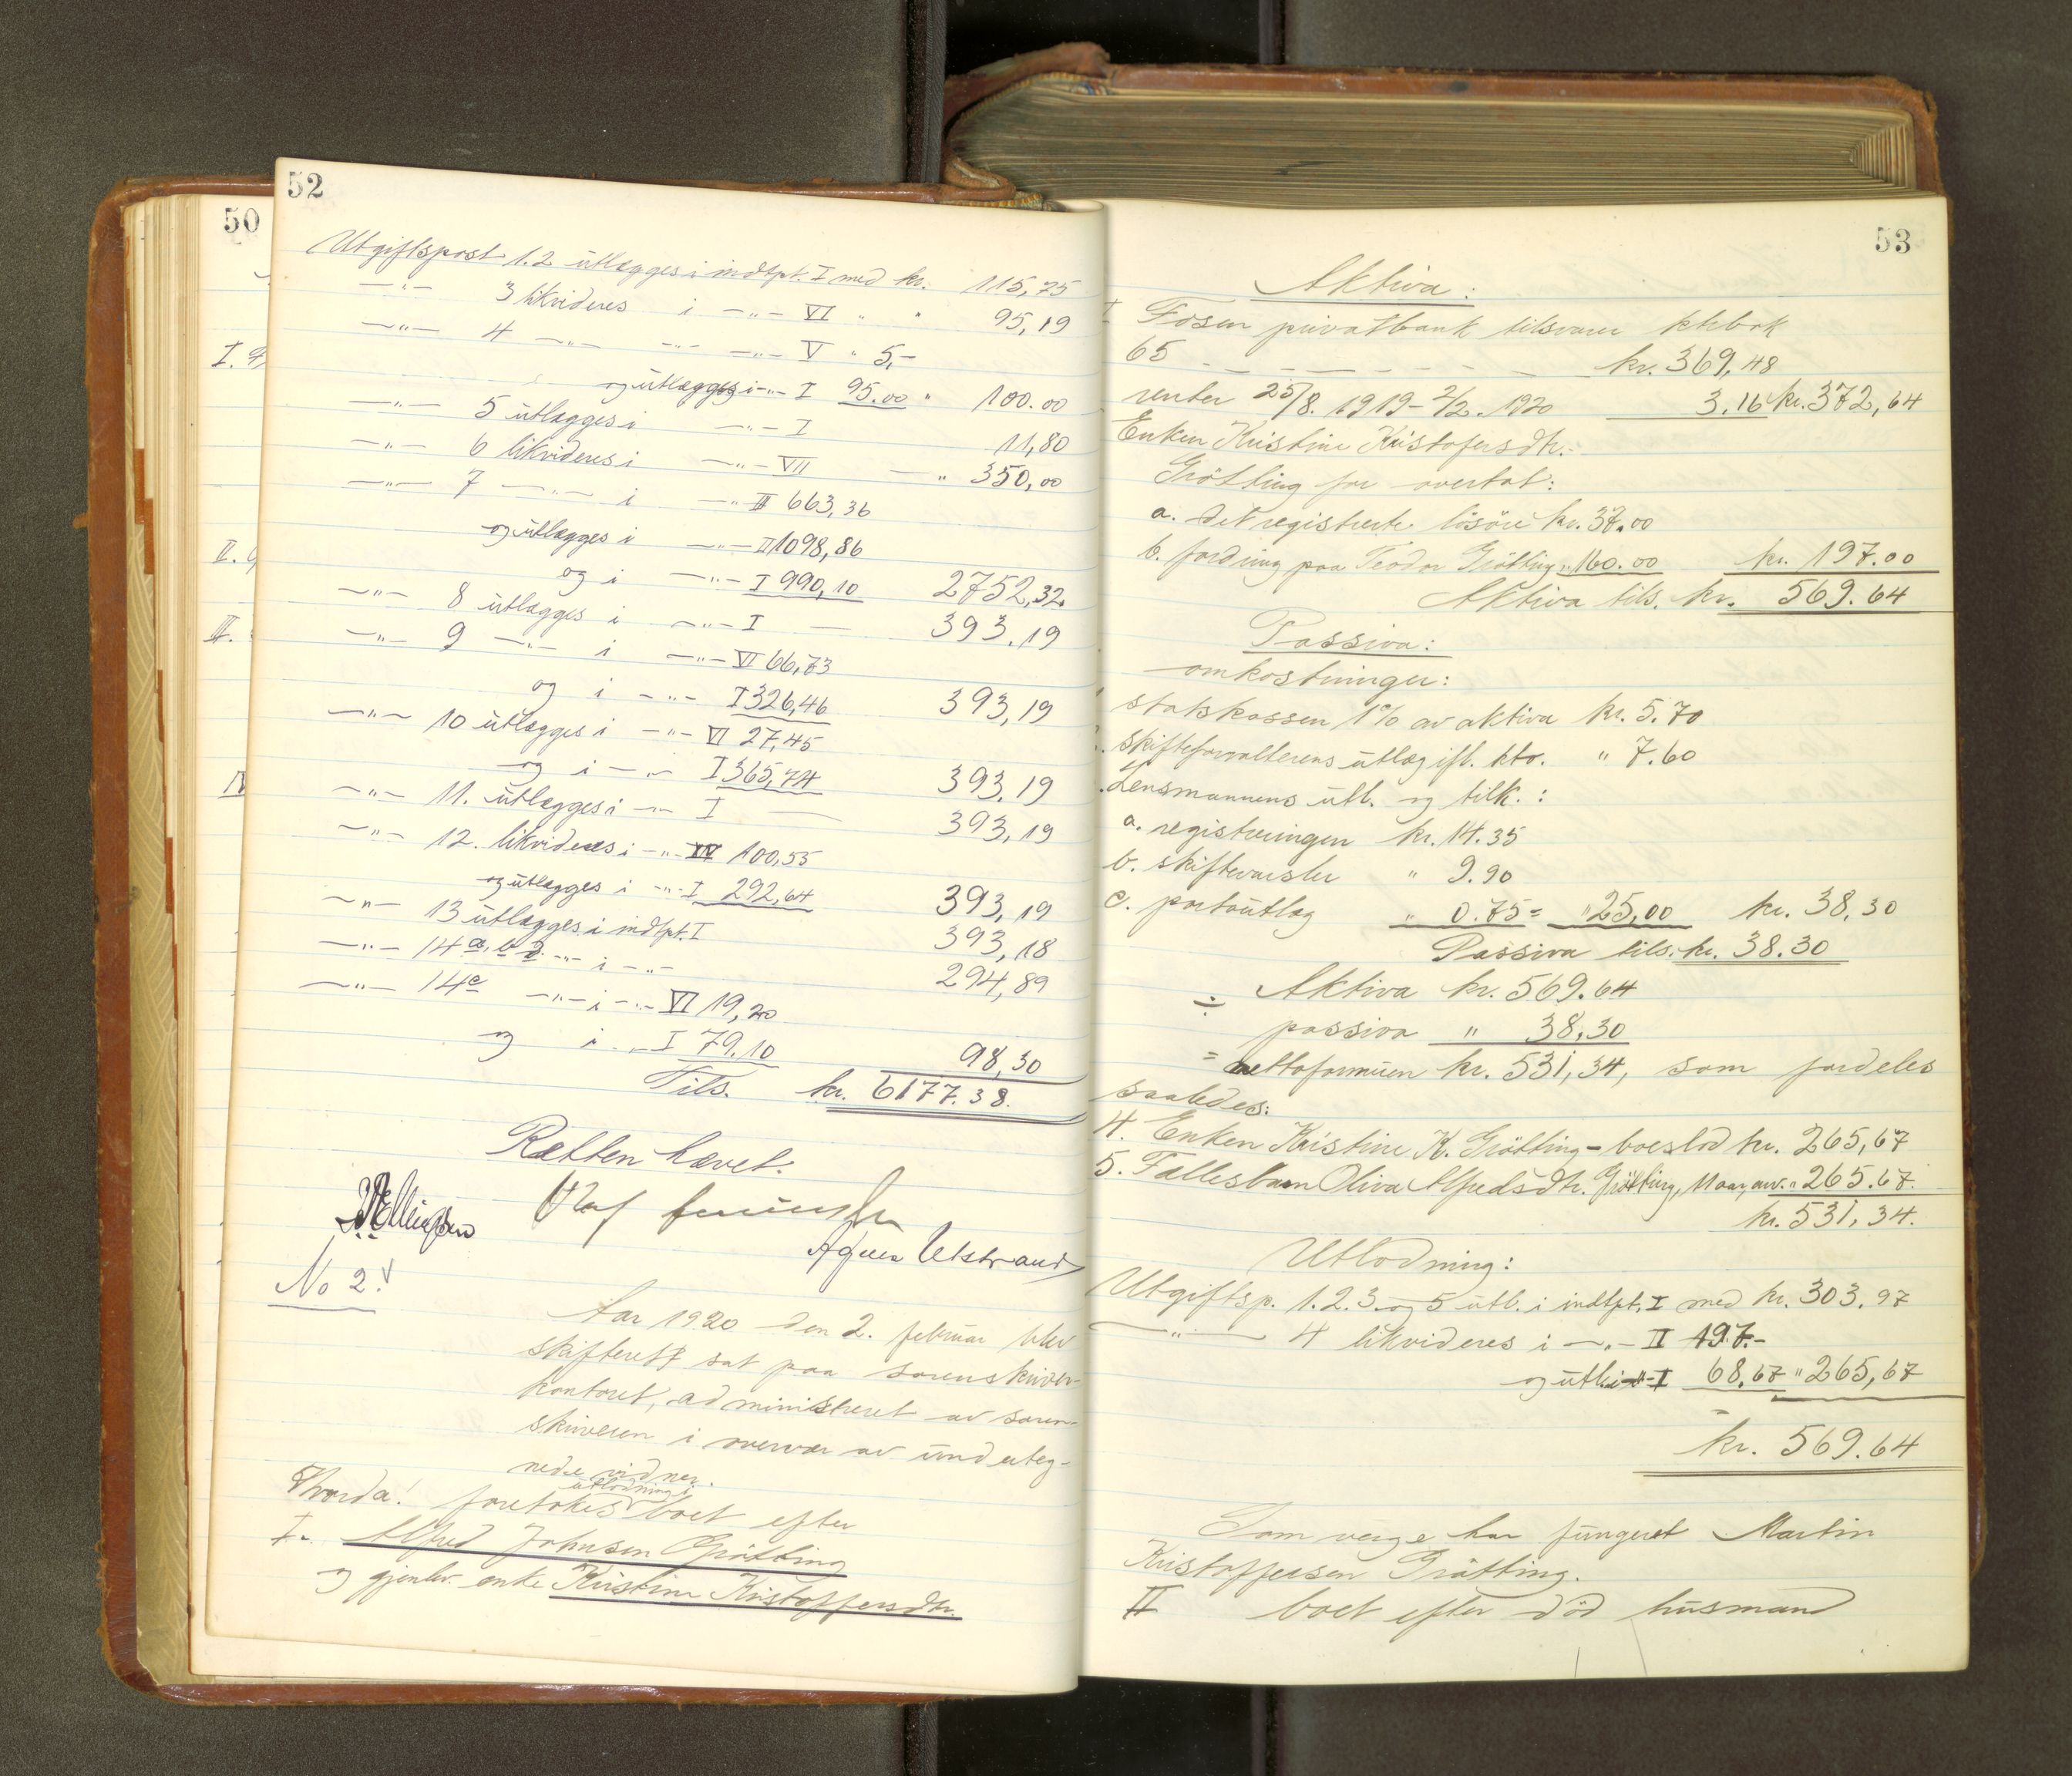 50
I.
II.
III.
IV
52
Utgiftspost 1.2 utlægges i indtpt. I med kr. 115,75
—"— 3 likvideres i —"— VI " " 95,19
—"— 4 —"— —"— —"— V " 5,-
og utlægges i —"— I 95.00 " 100.00
—"— 5 utlægges i —"— I 11,80
—"— 6 likvideres i —"— VII — " 350,00
—"— 7 —"— i —"— III 663,36
og utlægges i —"— II 1098,86
og i —"— I 990,10 2752,32
—"— 8 utlægges i —"— I — 393.19
—"— 9 —"— i —"— VI 66,73
og i —"— I 326,46 393,19
—"— 10 utlægges i —"— VI 27,45
og i —"— I 365,74 393,19
—"— 11. utlægges i —"— I — 393,19
—"— 12. likvideres i —"— IV 100,55
og utlægges i —"— I 292,64 393,19
—"— 13 utlægges i indtpt. I 393,18
—"— 14 a, b —"— i —"— 294,89
—"— 14c —"— i —"— VI 19,20
og i —"— I 79.10 98,30
Tils. kr. 6177.38.
Retten hævet.
Olaf
Agnes Utstrand
No 2.
Aar 1920 den 2. februar blev
skifteret sat paa sorenskriver-
kontoret, administreret av soren-
skriveren i overvær av underteg-
nede vidner.
Hvorda! foretokes utlodning i boet efter
I. Alfred Johnsen Grötting
og gjenlev. enke Kristine Kristoffersdtr.
53
Aktiva:
I Fosen privatbank tilsvarer ktrbok
65 — — — — — — — kr. 369,48
renter 25/8. 1919 - 2/2. 1920 3.16 kr. 372,64
Enken Kristine Kristofersdtr.
Grötting for overtat:
a. det registrerte lösöre kr. 37.00
b. fordring paa Teodor Grötting " 160.00 kr. 197.00
Aktiva tils. kr. 569.64
Passiva:
omkostninger:
statskassen 1% av aktiva kr. 5.70
skifteforvalterens utlæg ifl. kto. " 7.60
Lensmannens utl. og tilk.:
a. registreringen kr. 14.35
b. skiftevarsler " 9.90
c. portoutlæg " 0.75 = " 25,00 kr. 38,30
Passiva tils. kr. 38.30
Aktiva kr. 569.64
÷ passiva " 38,30
= nettoformuen kr. 531,34, som fordeles
saaledes:
4. Enken Kristine K. Grötting - boeslod kr. 265,67
5. Fællesbarn Oliva Alfredsdtr. Grötting, 11 aar, arv. " 265.67.
kr. 531,34.
Utlodning:
Utgiftsp. 1.2.3. og 5 utl. i indtpt. I med kr. 303.97
—"— 4 likvideres i —"— II 197.-
og utl. i —"— I 68,67 " 265,67
kr. 569.64
Som verge har fungeret Martin
Kristoffersen Grötting.
II boet efter död husmand